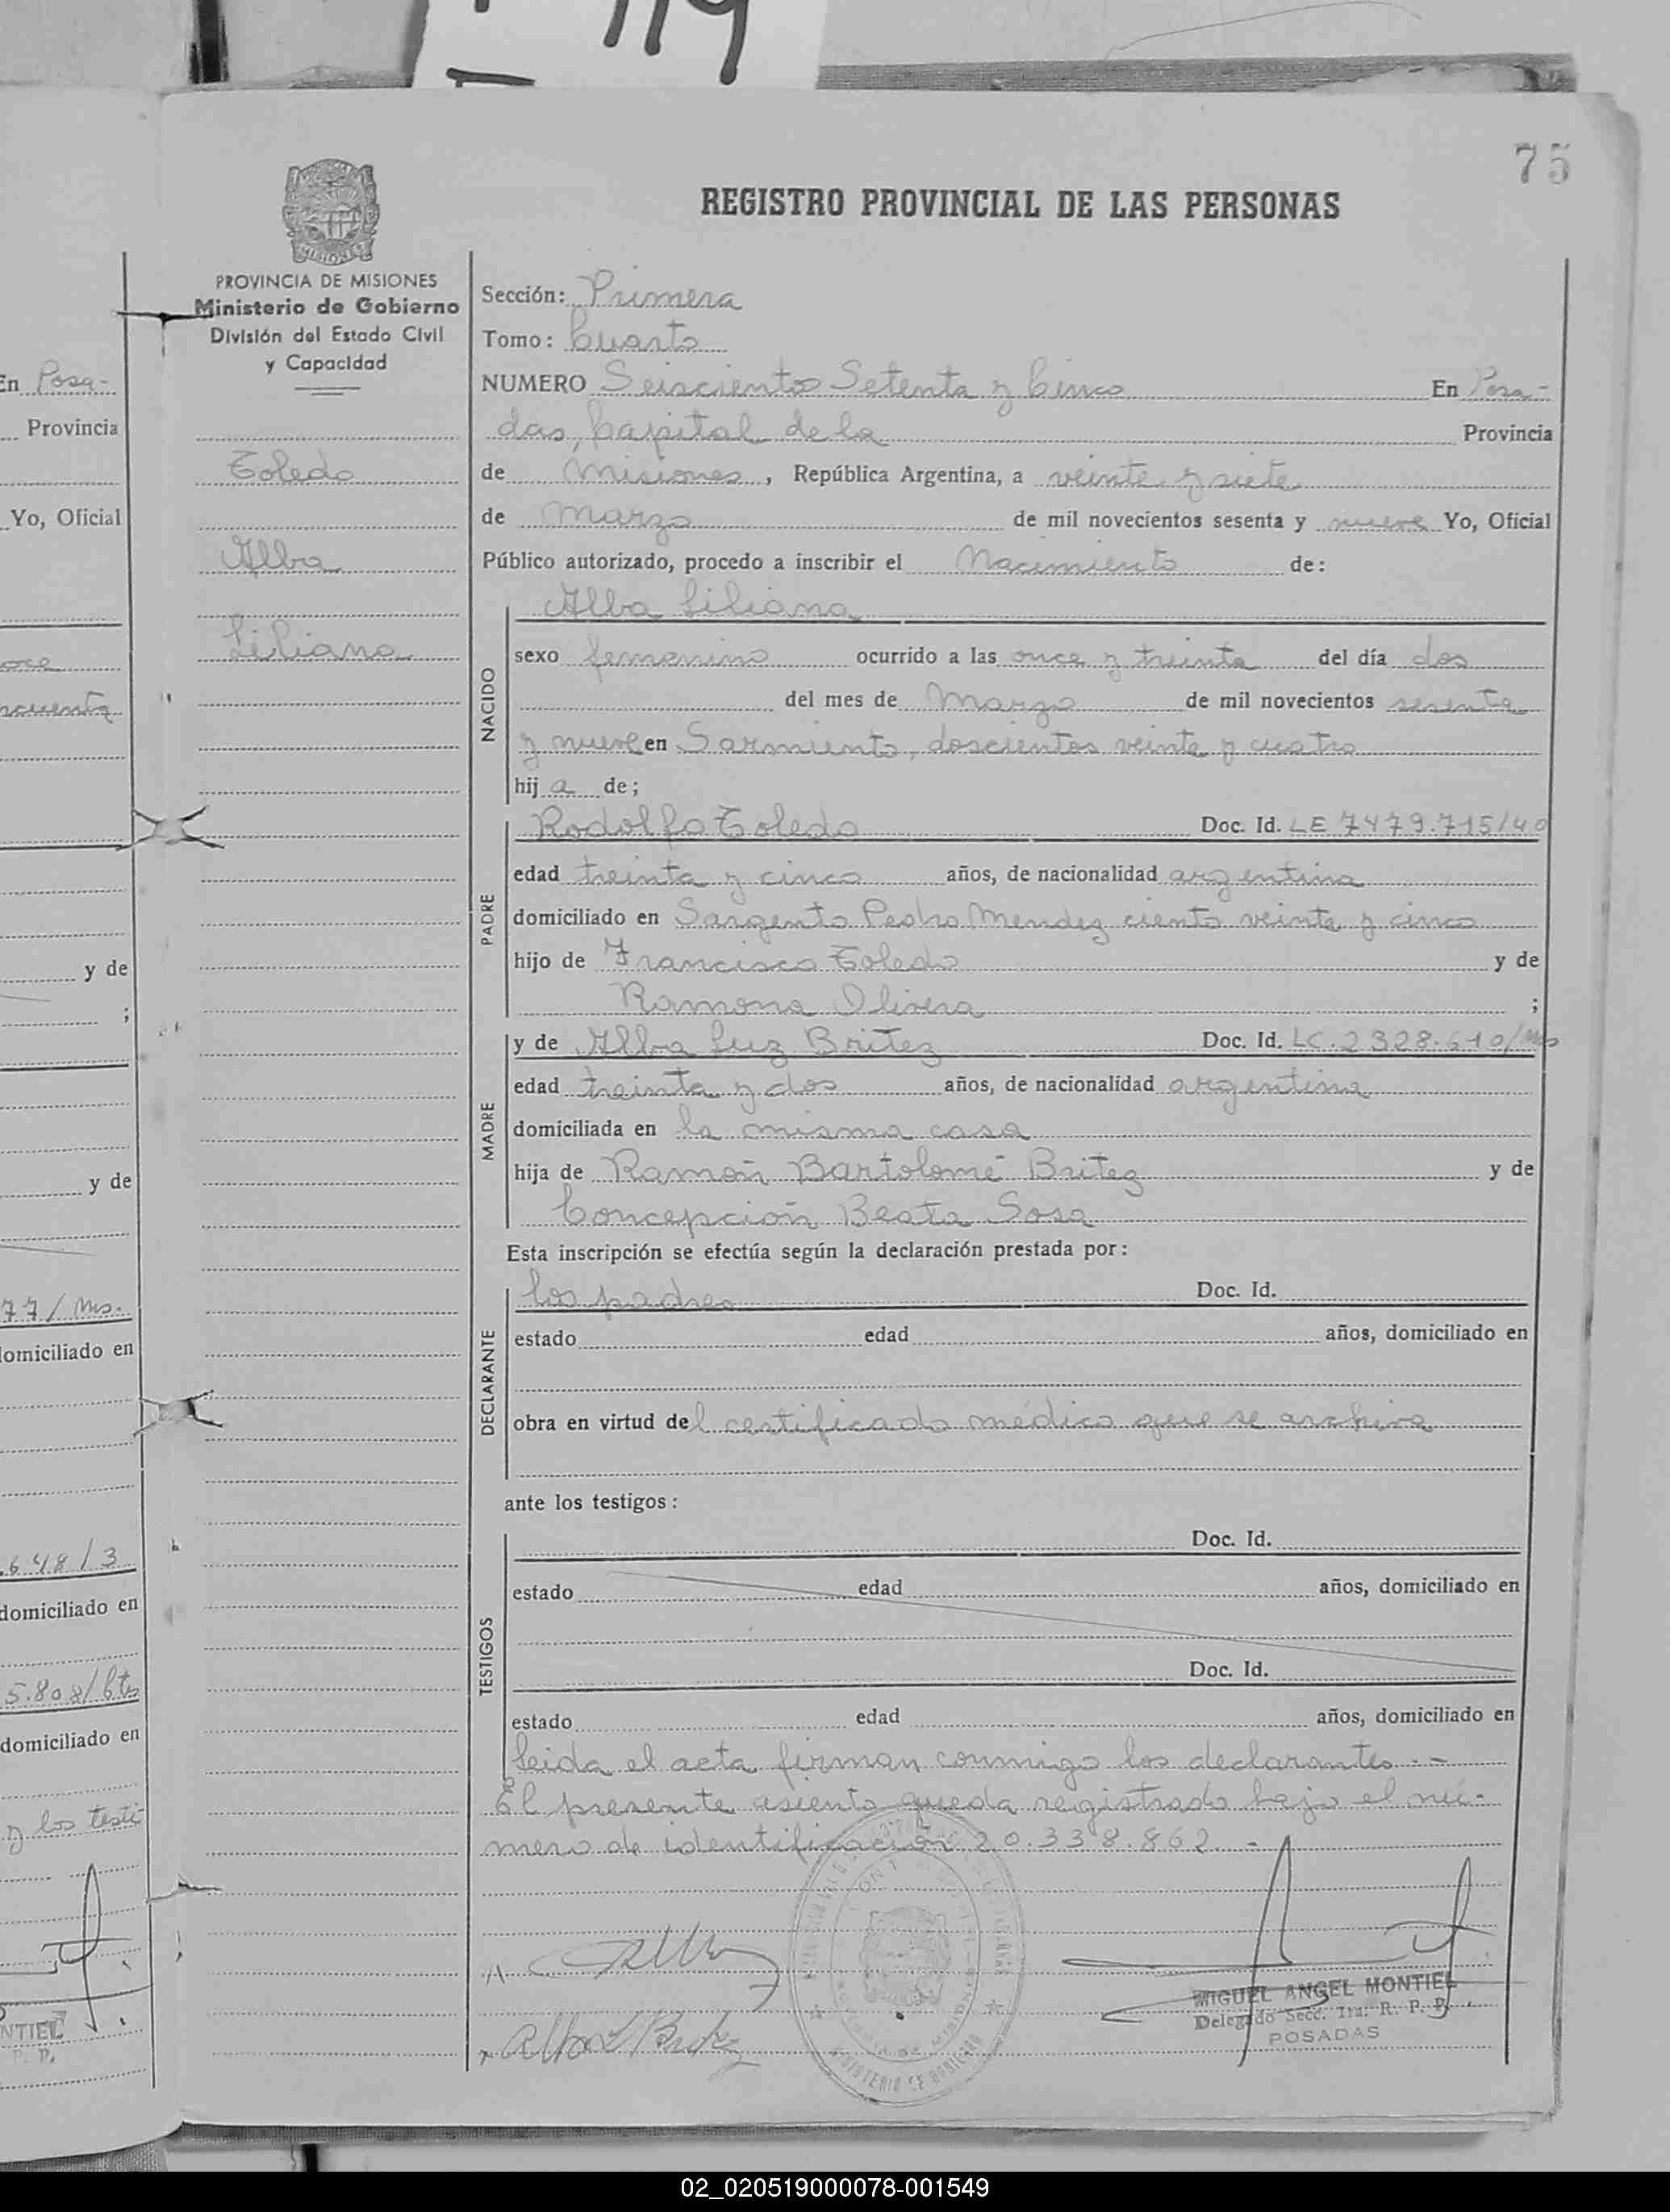 75
REGISTRO PROVINCIAL DE LAS PERSONAS
MISIONES
PROVINCIA DE MISIONES
Ministerio de Gobierno
División del Estado Civil
y Capacidad
Toledo
Alba
Liliana
Sección: Primera
Tomo: Cuarto
NUMERO Seiscientos Setenta y Cinco En Posa-
das, Capital de la Provincia
de Misiones, República Argentina, a veinte y siete
de Marzo de mil novecientos sesenta y nueve Yo, Oficial
Público autorizado, procedo a inscribir el Nacimiento de:
NACIDO
Alba Liliana
sexo femenino ocurrido a las once y treinta del día dos
del mes de Marzo de mil novecientos sesenta
y nueve en Sarmiento, doscientos veinte y cuatro
hij a de;
PADRE
Rodolfo Toledo Doc. Id. LE 7479.715/40
edad treinta y cinco años, de nacionalidad argentina
domiciliado en Sargento Pedro Mendez ciento veinte y cinco
hijo de Francisco Toledo y de
Ramona Olivera ;
MADRE
y de Alba Luz Britez Doc. Id. LC.2328.610/Ms
edad treinta y dos años, de nacionalidad argentina
domiciliada en la misma casa
hija de Ramón Bartolomé Britez y de
Concepción Beata Sosa
Esta inscripción se efectúa según la declaración prestada por:
DECLARANTE
los padres Doc. Id.
estado edad años, domiciliado en
obra en virtud del certificado médico que se archiva
ante los testigos:
TESTIGOS
Doc. Id.
estado edad años, domiciliado en
Doc. Id.
estado edad años, domiciliado en
Leida el acta firman conmigo los declarantes.-
El presente asiento queda registrado bajo el nú-
mero de identificación 20.338.862.-
Alba L Britez
MIGUEL ANGEL MONTIEL
Delegado Secc. 1ra. R. P. P.
POSADAS
En Posa-
Provincia
Yo, Oficial
y de
;
y de
77/Ms.
domiciliado en
.648/3
domiciliado en
5.808/Ctes
domiciliado en
y los testi
NTIEL
P. P.
02_020519000078-001549